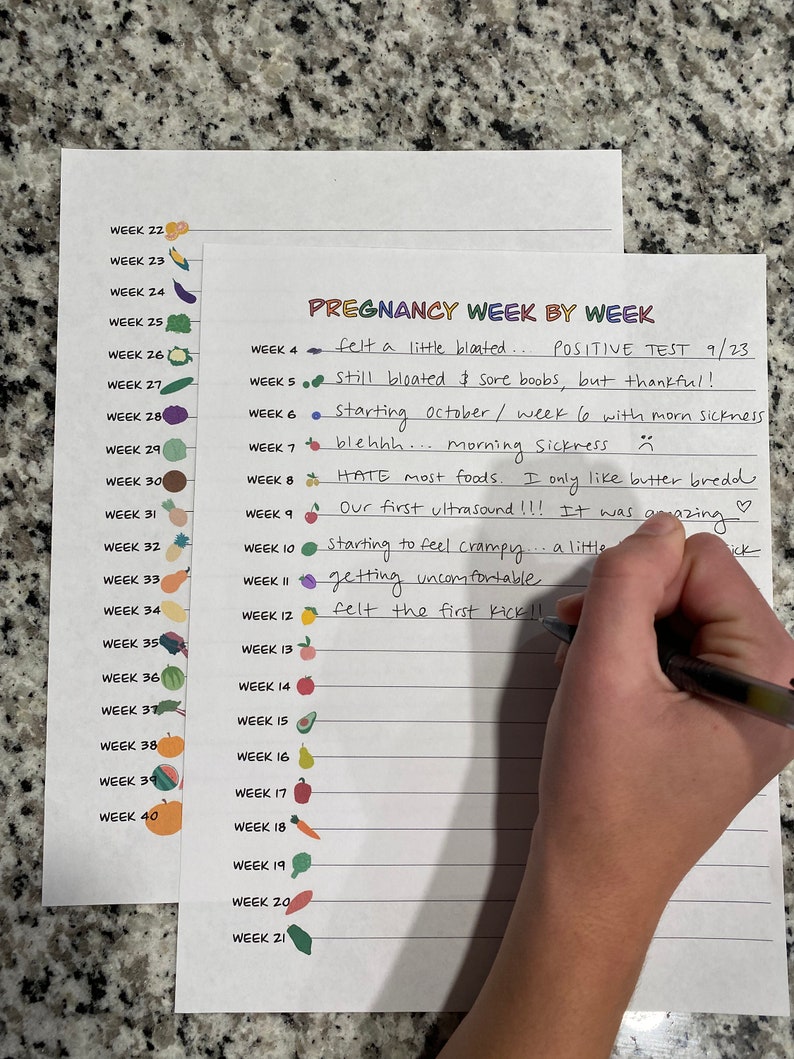 WEEK 22
WEEK 23
WEEK 24
WEEK 25
WEEK 26
WEEK 27
WEEK 28
WEEK 29
WEEK 30
WEEK 31
WEEK 32
WEEK 33
WEEK 34
WEEK 35
WEEK 36
WEEK 37
WEEK 38
WEEK 39
WEEK 40
PREGNANCY WEEK BY WEEK
WEEK 4 felt a little bloated... POSITIVE TEST 9/23
WEEK 5 still bloated & sore boobs, but thankful!
WEEK 6 starting october / week 6 with morn sickness
WEEK 7 blehhh... morning sickness
WEEK 8 HATE most foods. I only like butter bredd
WEEK 9 Our first ultrasound!!! It was amazing ♡
WEEK 10 starting to feel crampy... a little
WEEK 11 getting uncomfortable
WEEK 12 felt the first kick!!
WEEK 13
WEEK 14
WEEK 15
WEEK 16
WEEK 17
WEEK 18
WEEK 19
WEEK 20
WEEK 21